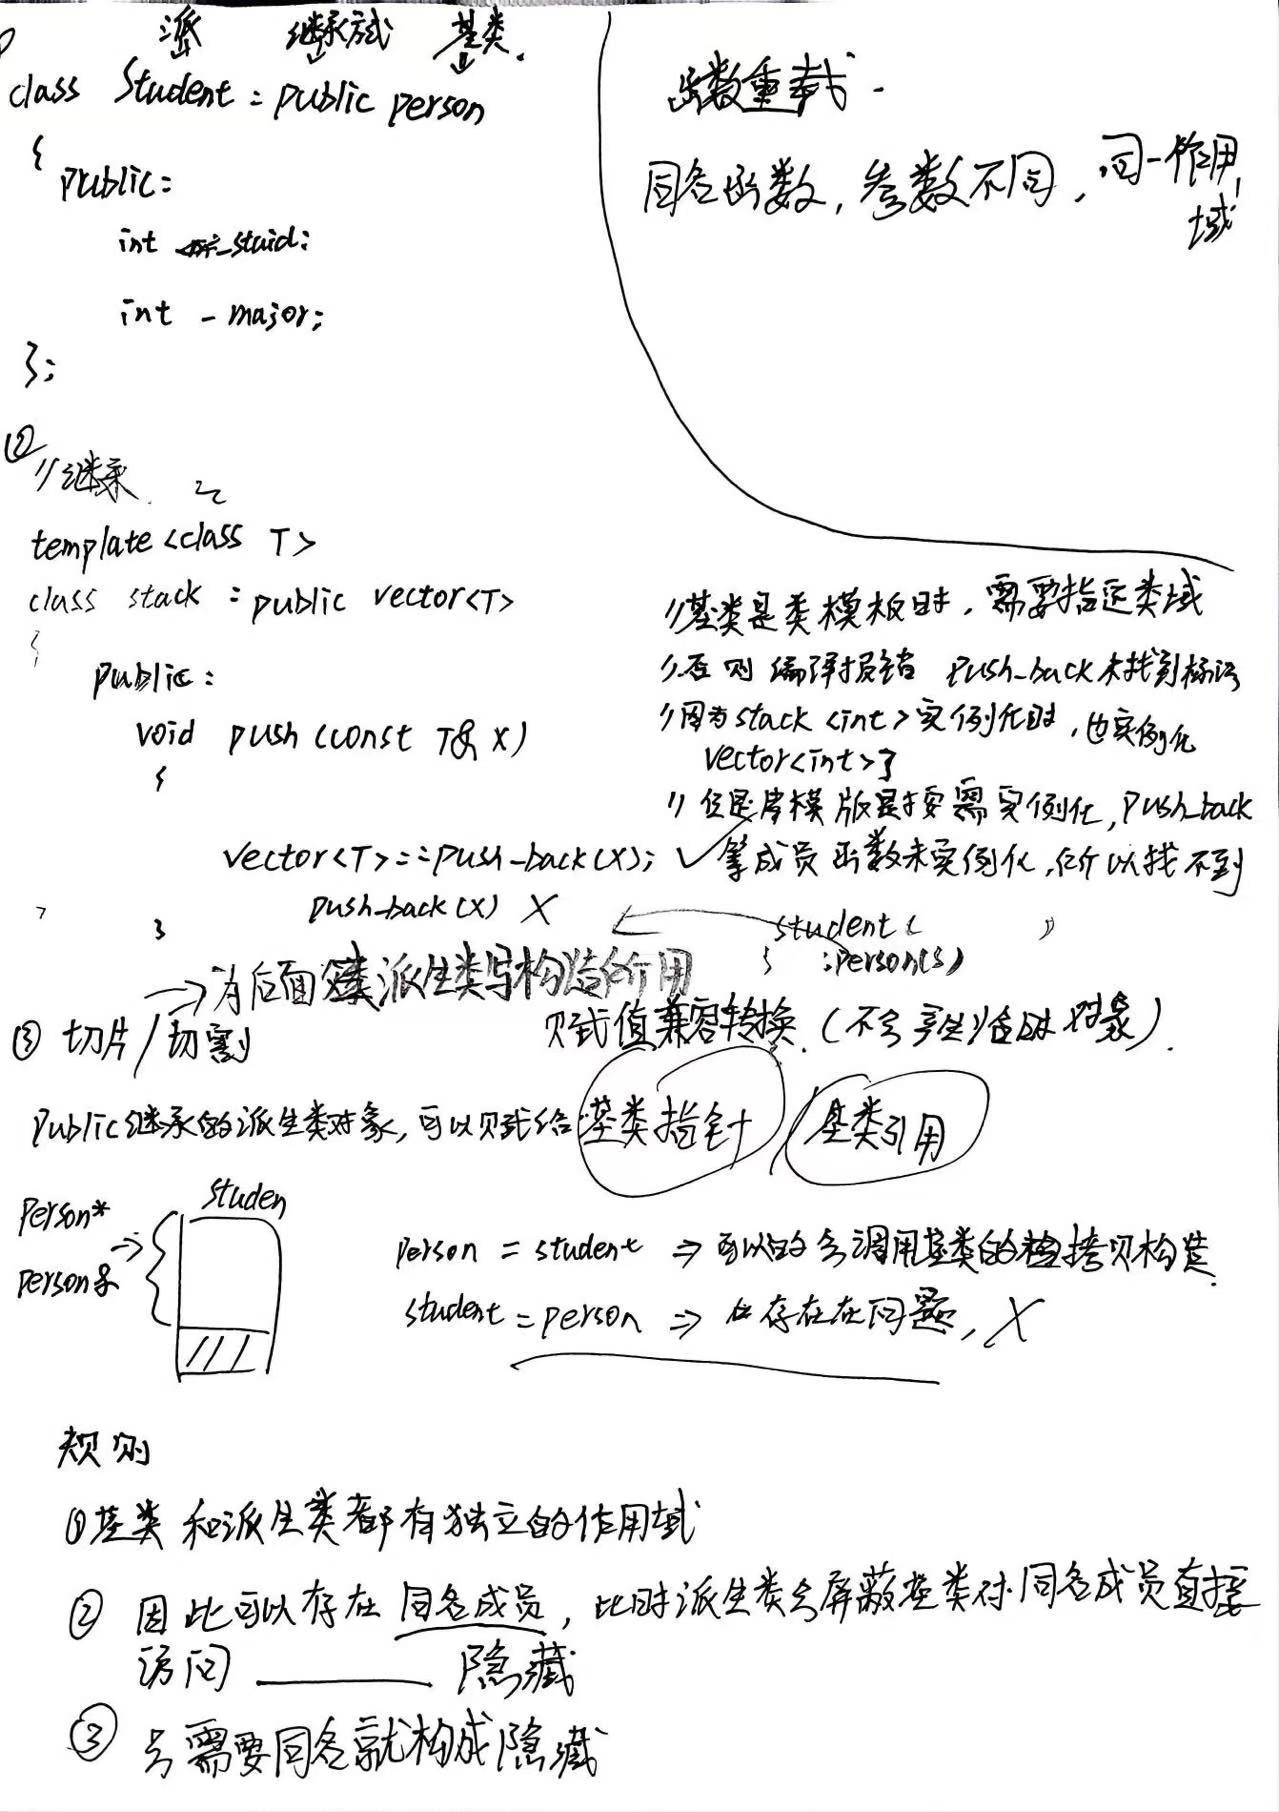 派 继承方式 基类
class Student : public person
{
public:
int _stuid;
int _major;
};
函数重载.
同名函数, 参数不同, 同一作用域
②
//继承
template<class T>
class stack : public vector<T>
{
public:
void push(const T& x)
{
vector<T>::push_back(x); ✓
push_back(x) X
}
//基类是类模板时, 需要指定类域
//否则编译报错 push_back未找到标识
//因为stack<int>实例化时, 也实例化
vector<int>了
//但是模版是按需实例化, push_back
等成员函数未实例化, 所以找不到
student( )
: person(s)
→ 为后面 派生类写构造的作用
③ 切片/切割
赋值兼容转换. (不会产生临时对象).
public继承的派生类对象, 可以赋给 基类指针 / 基类引用
person*
person&
studen
person = student ⇒ 可以的会调用基类的拷贝构造
student = person ⇒ 存在问题, X
规则
①基类和派生类都有独立的作用域
② 因此可以存在同名成员, 此时派生类会屏蔽基类对同名成员直接
访问 —— 隐藏
③ 只需要同名就构成隐藏